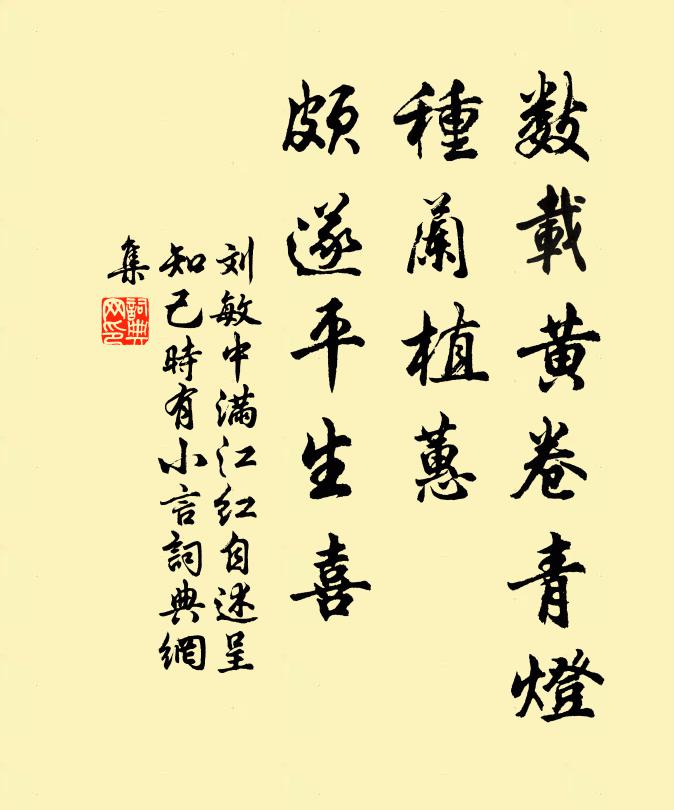 數載黄卷青燈
種蘭植蕙
頗遂平生喜
刘敏中满江红自述呈
知己時有小言詞典網
集
詞典
网印